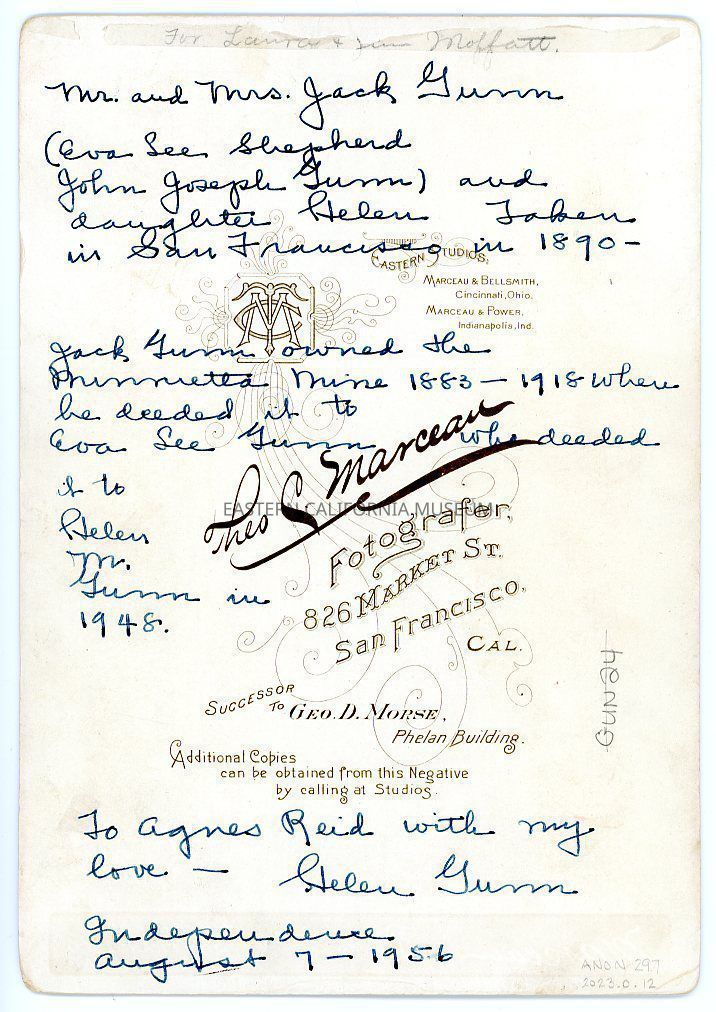 For Laura & Jim Moffatt.
Mr. and Mrs. Jack Gunn
(Eva See Shepherd
John Joseph Gunn) and
daughter Helen Taken
in San Francisco in 1890 –
EASTERN STUDIOS,
MARCEAU & BELLSMITH,
Cincinnati, Ohio.
MARCEAU & POWER,
Indianapolis, Ind.
Jack Gunn owned the
Minnietta Mine 1883 – 1918 when
he deeded it to
Eva See Gunn who deeded
it to
Helen
M.
Gunn in
1948.
Theo C Marceau
EASTERN CALIFORNIA MUSEUM
Fotografer,
826 MARKET ST.
San Francisco,
CAL.
SUCCESSOR
TO GEO. D. MORSE,
Phelan Building.
Additional Copies
can be obtained from this Negative
by calling at Studios.
To Agnes Reid with my
love – Helen Gunn
Independence
August 7 – 1956
ANON 297
2023.0.12